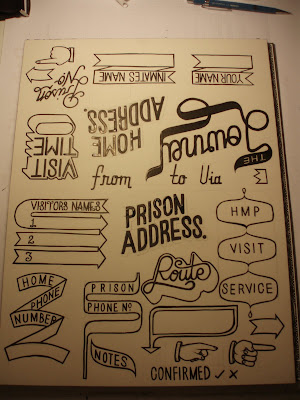 Prison
No
INMATES NAME
YOUR NAME
VISIT
TIME
HOME
ADDRESS.
THE
Journey
from to Via
VISITORS NAMES
1
2
3
PRISON
ADDRESS.
HMP
VISIT
SERVICE
HOME
PHONE
NUMBER
PRISON
PHONE Nº
NOTES
Route
CONFIRMED ✓ ✗